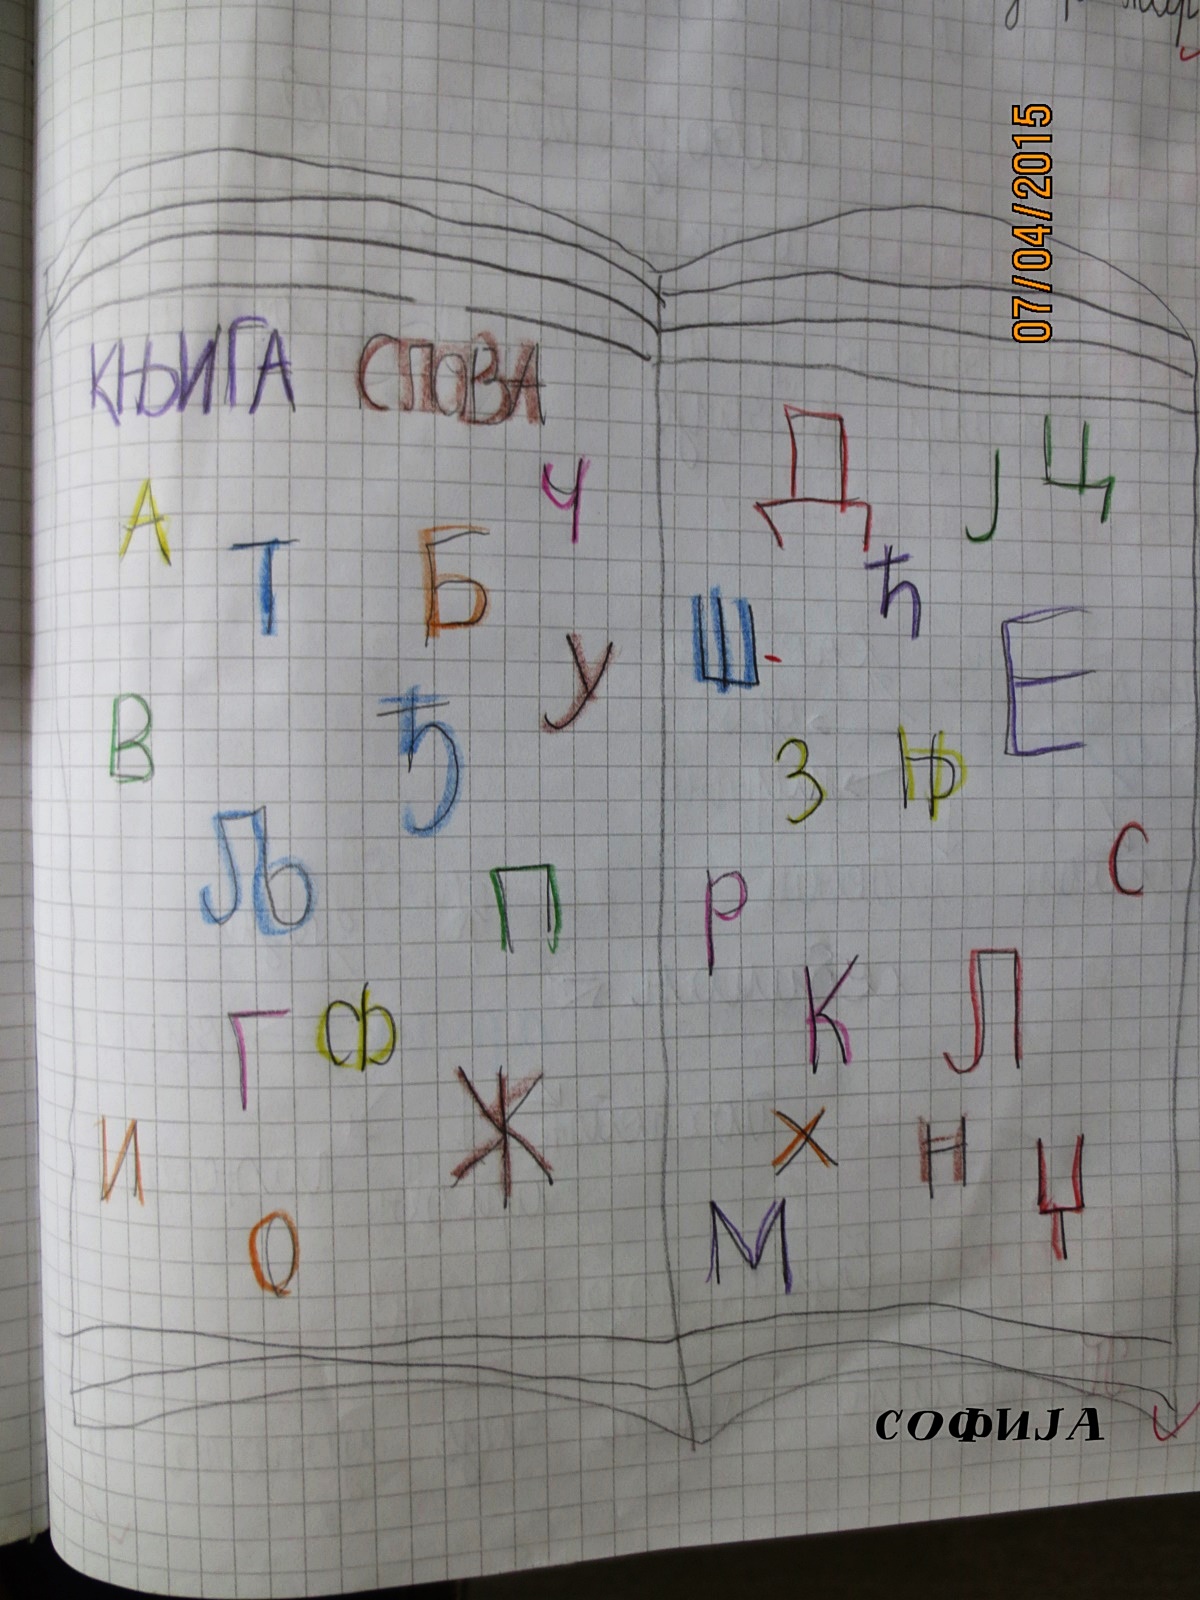 07/04/2015
КЊИГА СЛОВА
А Т Б Ч
В Ђ У
Љ П
Г Ф Ж
И О
Д Ј Ц
Ш Ћ Е
З Њ С
Р К Л
Х Н Џ
М
СОФИЈА